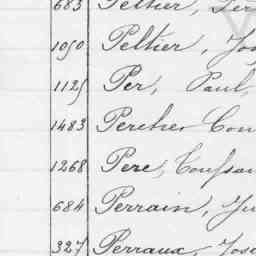 683 Peltier,
1090 Peltier, Jos
1125 Per, Paul,
1483 Percher Con
1268 Pere, Toussa
684 Perrain, Ju
327 Perraux, Jose